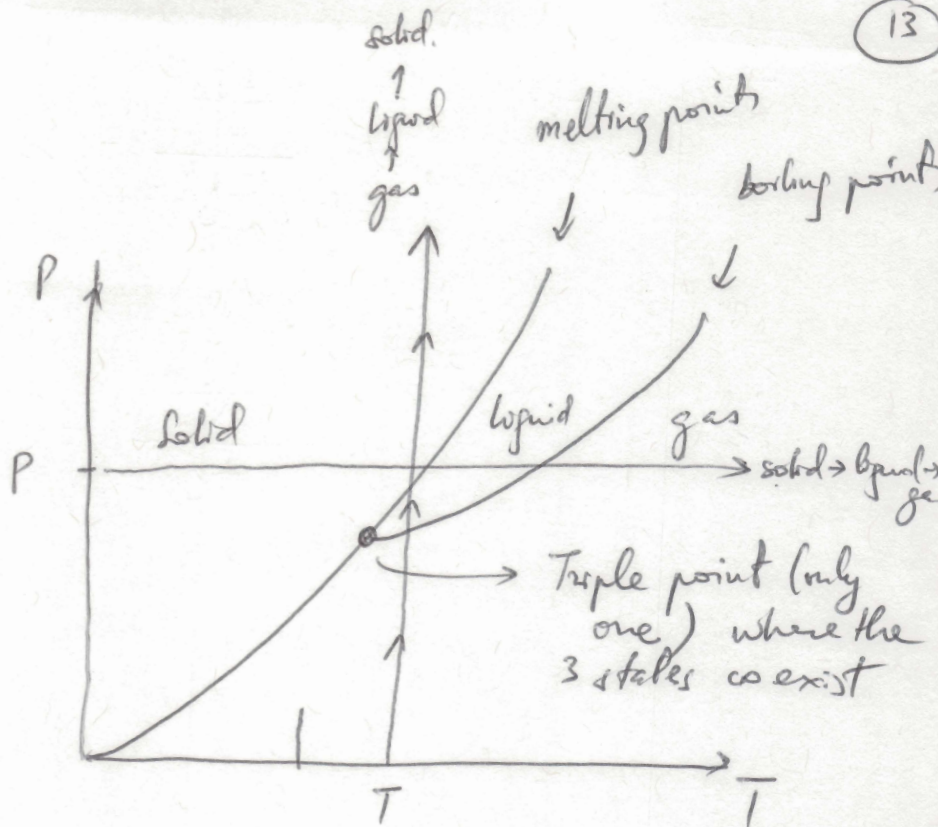 13
solid.
↑
liquid
↑
gas
melting points
boiling points
P
Solid
liquid
gas
P
solid → liquid →
gas
Triple point (only
one) where the
3 states coexist
T
T